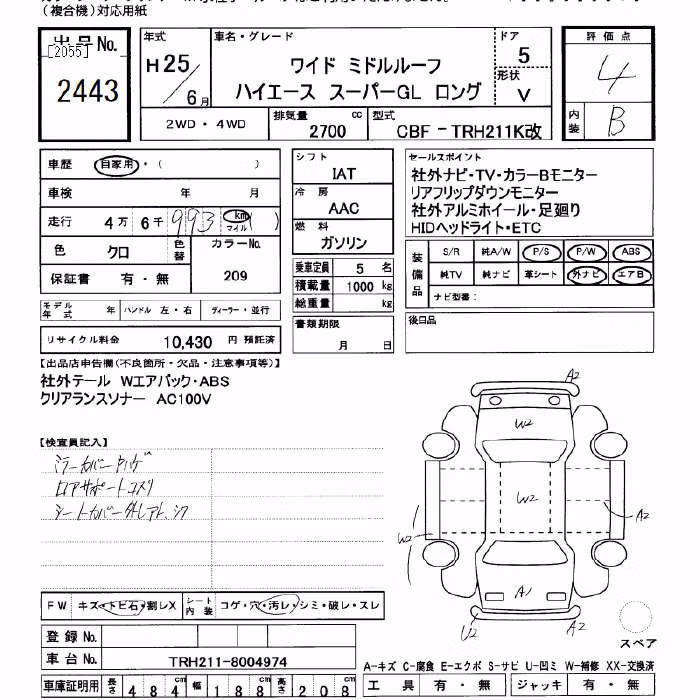 (複合機)対応用紙
出品No.
[2055]
2443
年式
H25/6月
車名・グレード
ワイド ミドルルーフ
ハイエース スーパーGL ロング
ドア
5
形状
V
評価点
4
内装
B
2WD・4WD
排気量
2700 cc
型式
CBF-TRH211K改
車歴 自家用・( )
車検 年 月
走行 4万 6千 993 km マイル ( )
色 クロ
色替
カラーNo.
209
保証書 有・無
モデル年式 年 ハンドル 左・右 ディーラー・並行
リサイクル料金 10,430 円 預託済
シフト
IAT
冷房
AAC
燃料
ガソリン
乗車定員 5 名
積載量 1000 kg
総重量 kg
書類期限
月 日
セールスポイント
社外ナビ・TV・カラーBモニター
リアフリップダウンモニター
社外アルミホイール・足廻り
HIDヘッドライト・ETC
装備品
S/R 純A/W P/S P/W ABS
純TV 純ナビ 革シート 外ナビ エアB
ナビ型番:
後日品
【出品店申告欄(不良箇所・欠品・注意事項等)】
社外テール Wエアバック・ABS
クリアランスソナー AC100V
【検査員記入】
ミラーカバー
ロアサポートコスリ
シートカバー外し
A2
W2
W2
A2
W2
A1
U2
A2
スペア
FW キズ・トビ石・割レX シート内装 コゲ・穴・汚レ・シミ・破レ・スレ
登録No.
車台No. TRH211-8004974
車庫証明用 長さ 484cm 幅 188cm 高さ 208cm
A-キズ C-腐食 E-エクボ S-サビ U-凹ミ W-補修 XX-交換済
工具 有・無 ジャッキ 有・無